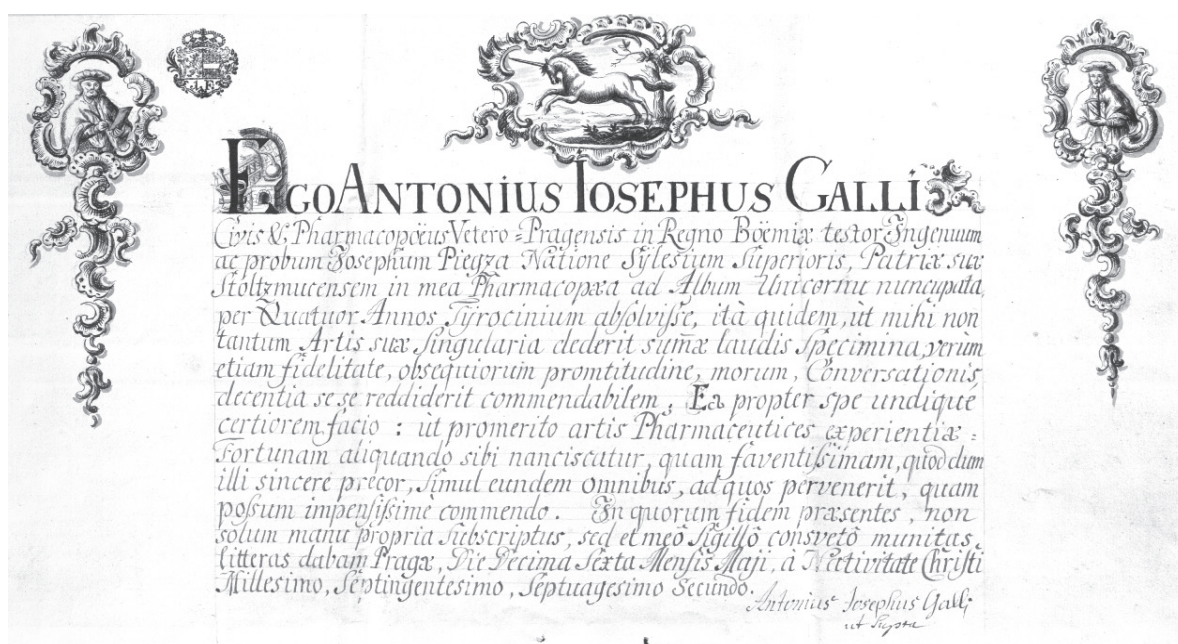 EGO ANTONIUS IOSEPHUS GALLI
Civis & Pharmacopœus Vetero=Pragensis in Regno Böemiæ testor Ingenuum
ac probum Josephum Piegza Natione Sylesium Superioris, Patriæ suæ
Stoltzmucensem in mea Pharmacopæa ad Album Unicornu nuncupata,
per Quatuor Annos Tyrocinium absolvisse, ità quidem, ùt mihi non
tantum Artis suæ singularia dederit sum̄æ laudis Specimina, verùm
etiam fidelitate, obsequiorum promtitudine, morum, Conversationis,
decentia se se reddiderit commendabilem. Ea propter spe undique
certiorem facio : ùt promerito artis Pharmaceutices experientiæ =
Fortunam aliquando sibi nanciscatur, quam faventissimam, quod dum
illi sincerè precor, simul eundem omnibus, ad quos pervenerit, quam
possum impensissimè commendo. In quorum fidem præsentes, non
solum manu propria subscriptus, sed et meô Sigillô consvetô munitas,
litteras dabam Pragæ, Die Decima Sexta Mensis Maji, à Nativitate Christi
Millesimo, Septingentesimo, Septuagesimo Secundo.
Antonius Josephus Galli
ut Supra